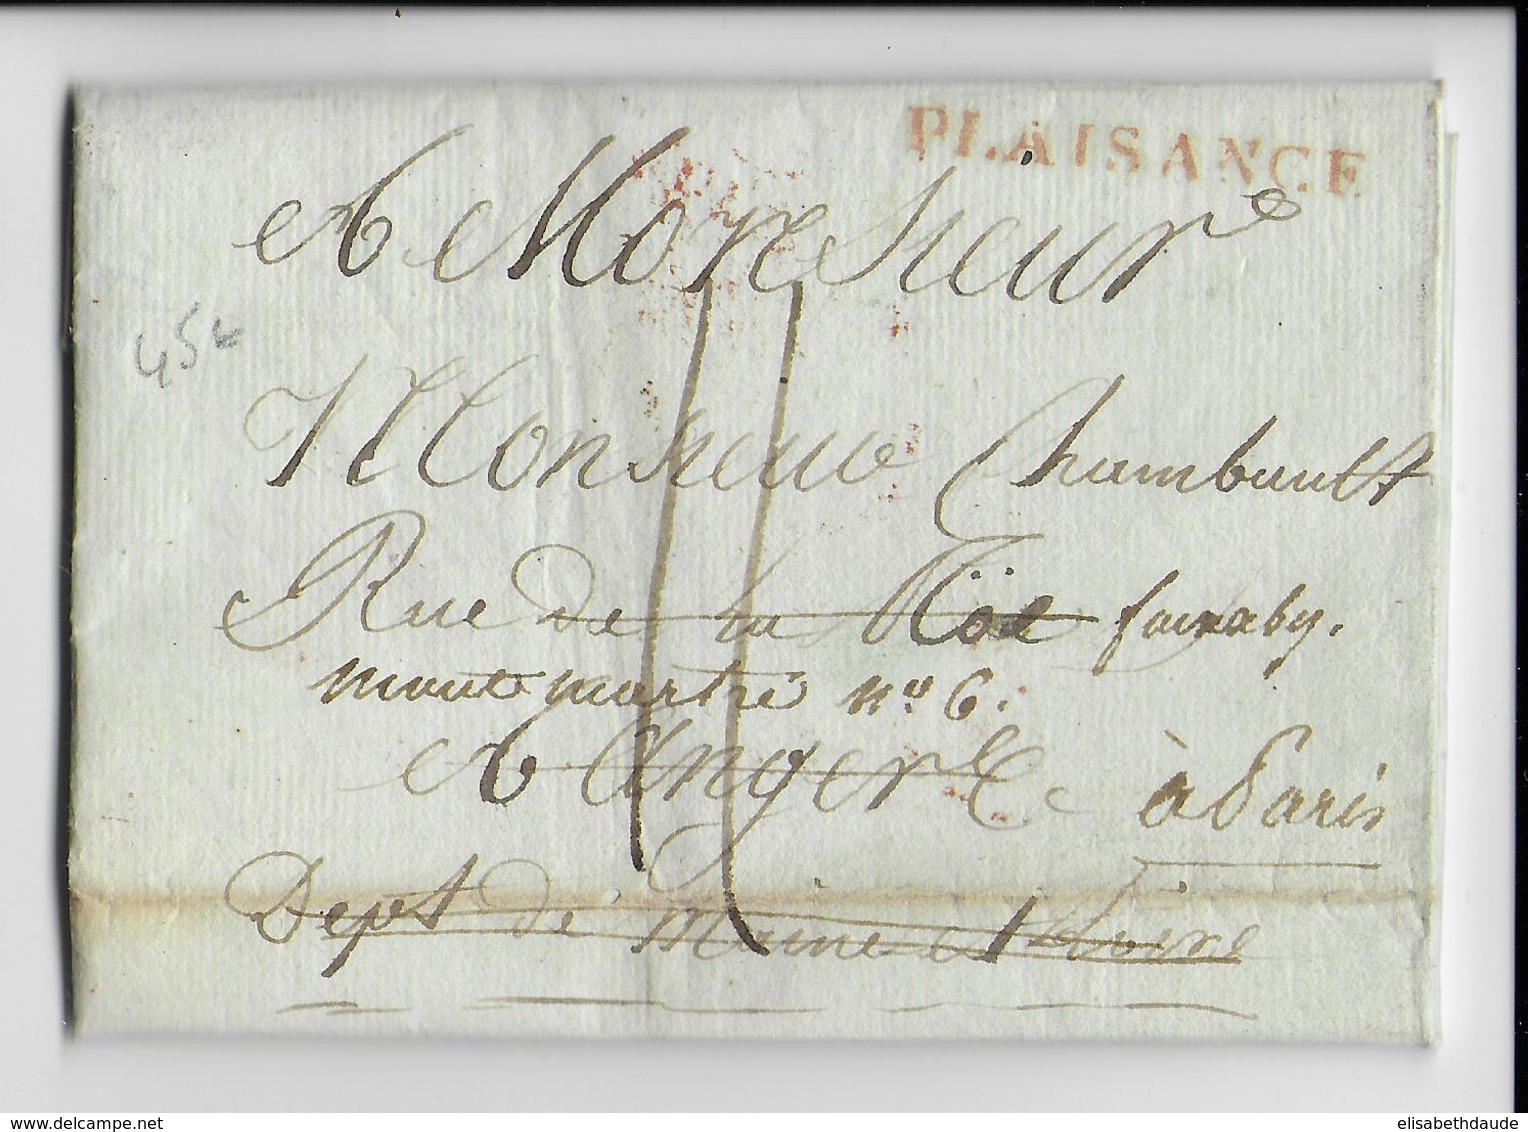 PLAISANCE
A Monsieur
45€
Monsieur Chambault
Rue de la Röe faux by.
montmartre nº 6.
A Angers
à Paris
Dept de Maine et Loire
delcampe.net
elisabethdaude